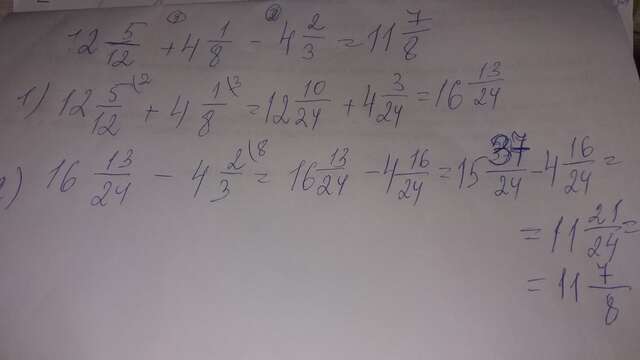 ① ②
12 5/12 + 4 1/8 - 4 2/3 = 11 7/8
1) 12 5/12 \2 + 4 1/8 \3 = 12 10/24 + 4 3/24 = 16 13/24
2) 16 13/24 - 4 2/3 \8 = 16 13/24 - 4 16/24 = 15 37/24 - 4 16/24 =
= 11 21/24 =
= 11 7/8